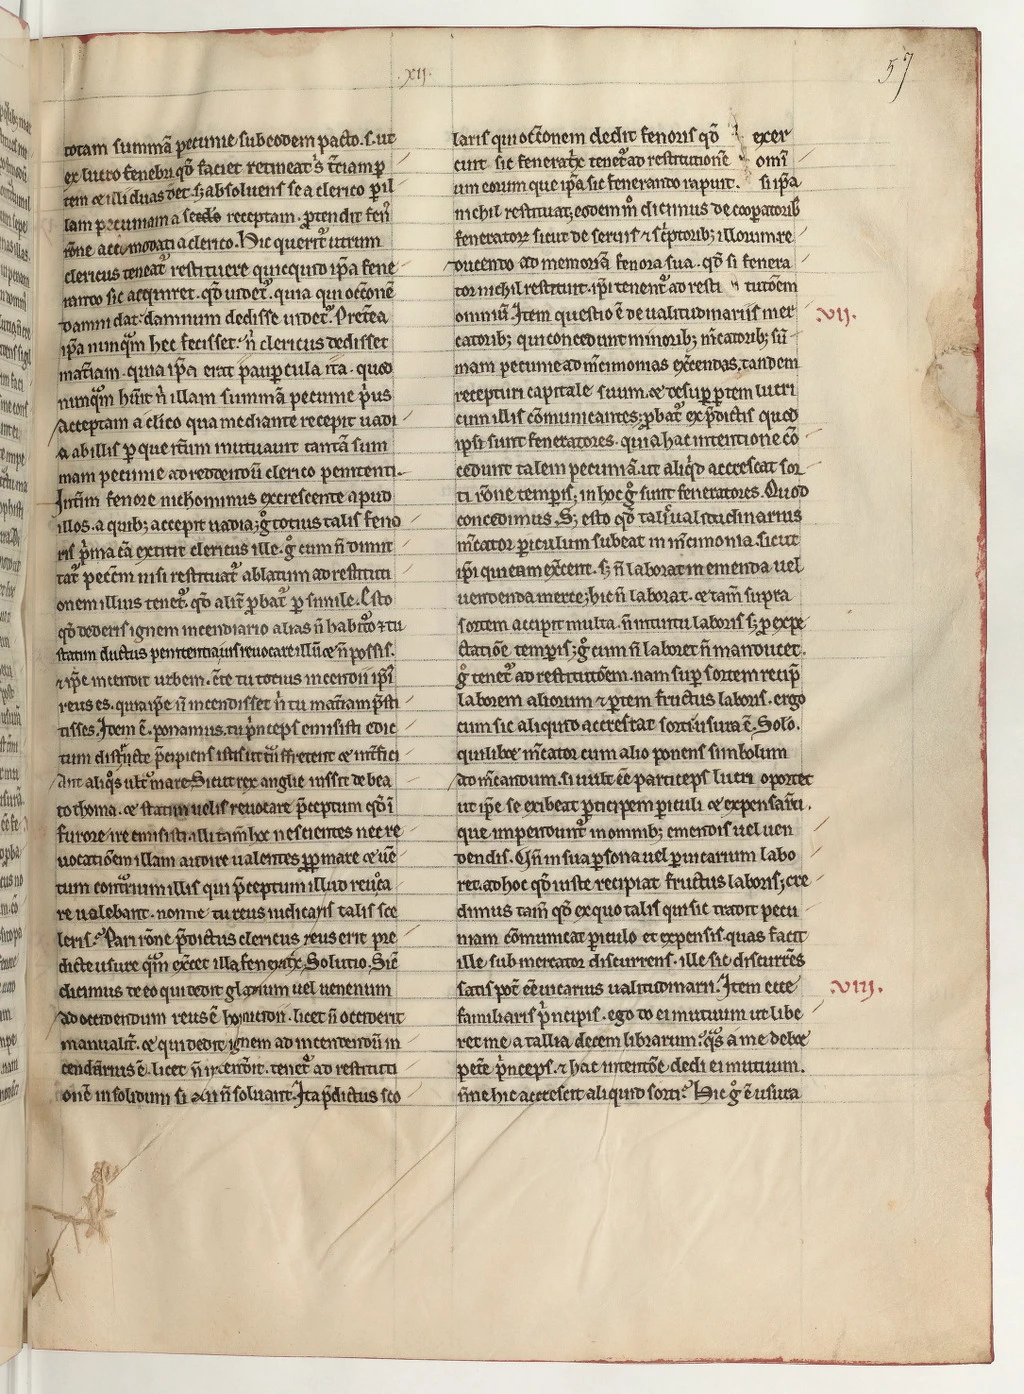 .xij.
57
totam summā pecunie sub eodem pacto .s. ut
ex lucro fenebri qđ faciet retineat
tem ⁊ illi duas det. sꝫ absoluens se a clerico
lam pecuniam a receptam. ptendit
a clerico. Hic querit᷑ utrum
clericus teneat᷑ restituere quicquid ipa fene
rando sic acquiret. qđ uidet᷑. quia qui occōnē
damni dat: damnum dedisse uidet᷑. Preťea
ipa nunqm hec fecisset. ñ clericus dedisset
mat̄iam. quia ipa erat paupcula ita. quod
nunqm illam summā pecunie
Acceptam a clico qua mediante recepit uadi
a ab illis quē rerum mutuauit tantā sum
mam pecunie ad reddendū clerico penitenti.
Int̄im fenore nichominus excrescente apud
illos. a quibꝫ accepit uadia; ḡ totius talis feno
ris pma cā extitit clericus ille. ḡ cum ñ dimit
tat᷑ peccm nisi restituat᷑ ablatum ad restituti
onem illius tenet᷑. qđ alit̄ pbat᷑ p simile. Esto
qđ dederis ignem incendiario alias ñ habitō ⁊ tu
statim ductus penitentia uis reuocare illū ⁊ ñ possis.
⁊ ipe incendit urbem. c̄te tu totius incendii ipi
reus es. quia ipe ñ incendisset ñ tu mat̄iam psti
tisses. Item ē. ponamus. tu pnceps emisisti edic
tum districte pcipiens istis ut suffretent ⁊ int̄fici
Ant aliqs ult mare. Sicut rex anglie iussit de bea
to thoma. ⁊ statim uelis reuocare pceptum qđ ī
furore ire emisisti. illi tam hoc nescientes nec re
uocatiōem illam audire ualentes ppt mare ⁊ uē
tum cont̄rium illis qui pceptum illud reuoca
re ualebant. nonne tu reus iudicaris talis sce
leris. Pari rōne pdictus clericus reus erit pre
dicte usure qm excet illa feneratx. Solutio. Sic
dicimus de eo qui dedit gladium uel uenenum
ad occidendum reus ē homicidii. licet ñ occiderit
manualit̄. ⁊ qui dedit ignem ad incendendū in
cendarius ē. licet ñ incendit. tenet᷑ ad restituti
onē in solidum si alii ñ soluant. Ita pdictus sco
laris qui occōnem dedit fenoris qđ exer
cuit sic feneratx tenet᷑ ad restitutionē omi
um eorum que ipa sic fenerando rapuit. si ipa
nichil restituat; eodem m̊ dicimus de coopatoribꝫ
feneratorꝫ sicut de seruis ⁊ sc̄ptoribꝫ illorum re
ducendo ad memoriā fenora sua. qđ si fenera
tor nichil restituit. ipi tenent᷑ ad resti tutōem
omniū. Item questio ē de ualitudinariis mer
.VII.
catoribꝫ qui concedunt minoribꝫ m̄catoribꝫ sū
mam pecunie ad m̄cimonias exc̄endas. tandem
recepturi capitale suum. ⁊ desup ptem lucri
cum illis cōmunicantes; pbat᷑ ex pdictis quod
ipsi sunt feneratores. quia hac intentione cō
cedunt talem pecuniā. ut aliqd accrescat sor
ti rōne tempis; in hoc ḡ sunt feneratores. Quod
concedimus. Sꝫ esto qđ talis ualitudinarius
m̄cator piculum subeat in m̄cimonia. sicut
ipi qui eam exc̄ent. sꝫ ñ laborat in emenda uel
uendenda merce; hic ñ laborat. ⁊ tam supra
sortem accipit multa. ñ intuitu laboris sꝫ p expe
ctatiōe tempis; ḡ cum ñ laboret ñ manducet.
ḡ tenet᷑ ad restitutōem. nam sup sortem recip
laborem aliorum ⁊ ptem fructus laboris. ergo
cum sic aliquid accrescat sorti: usura ē. Solo.
quilibet m̄cator cum alio ponens simbolum
ad m̄candum. si uult eē particeps lucri oportet
ut ipe se exibeat pticipem piculi ⁊ expensarū.
que impendunt᷑ in omnibꝫ emendis uel uen
dendis. Qñ in sua psona uel p uicarium labo
ret. ad hoc qđ iuste recipiat fructus laboris; cre
dimus tam qđ ex quo talis qui sic tradit pecu
niam cōmunicat piculo et expensis quas facit
ille sub mercator discurrens. ille sic discurrēs
satis pot eē uicarius ualitudinarii. Item ecce
.VIII.
familiaris pncipis. ego do ei mutuum ut libe
ret me a tallia decem librarum: qs a me debet
peťe pnceps. ⁊ hac intentōe dedi ei mutuum.
ñne hic accrescit aliquid sorti? Hic ḡ ē usura